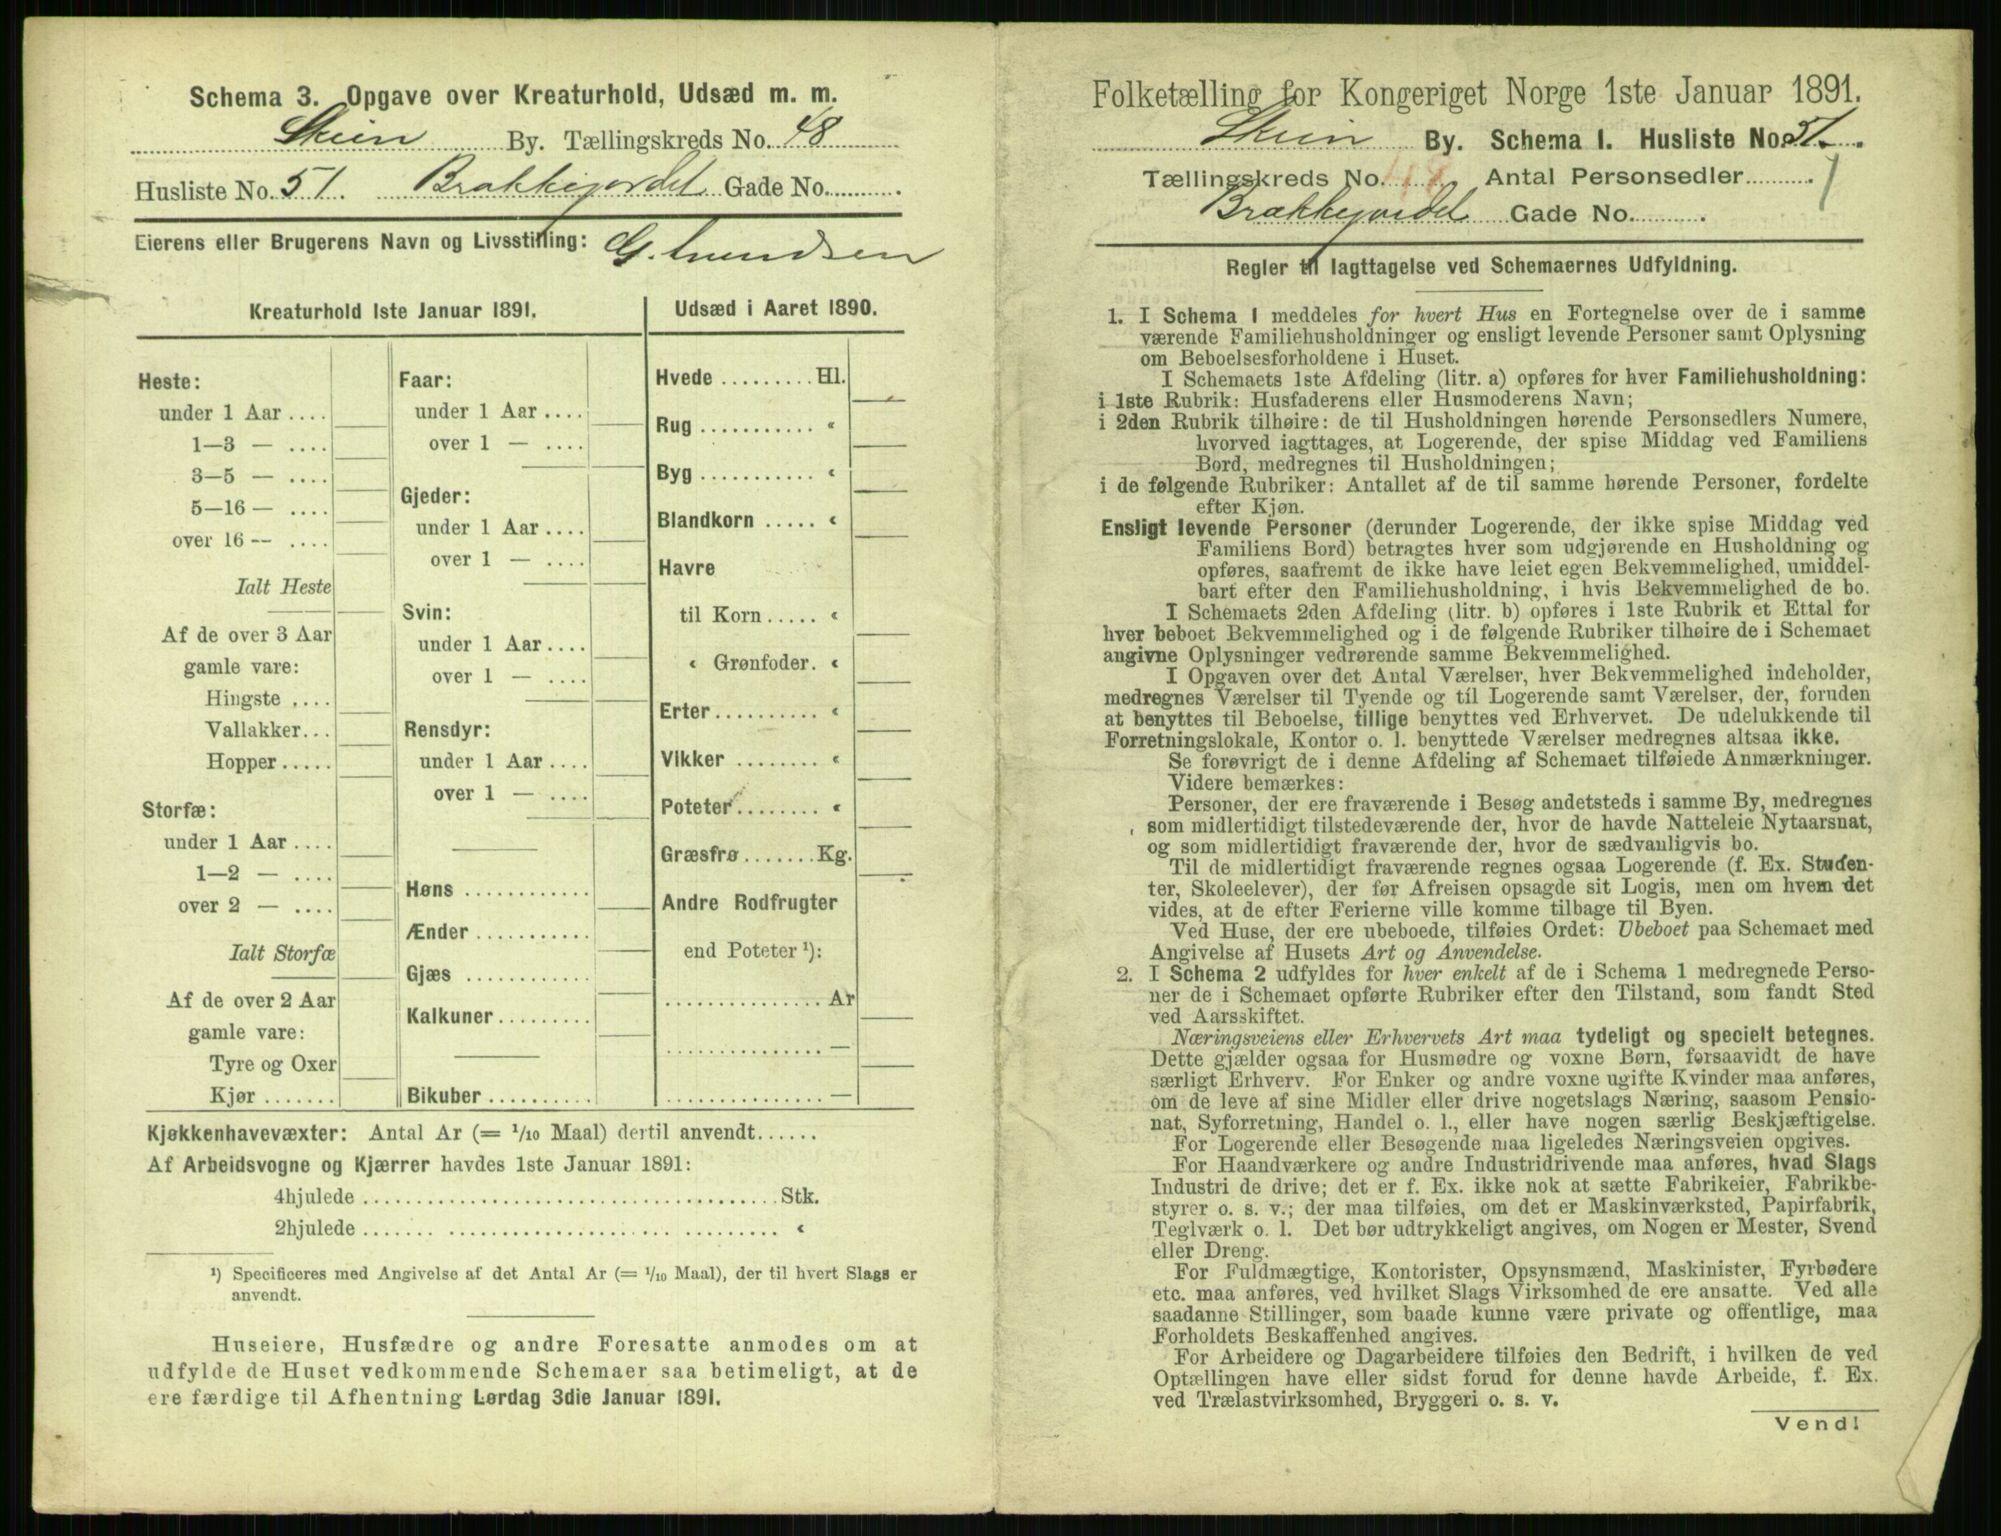 Schema 3. Opgave over Kreaturhold, Udsæd m. m.
Skien By. Tællingskreds No. 48
Husliste No. 51. Brækkejordet Gade No. .
Eierens eller Brugerens Navn og Livsstilling: G. Amundsen
Kreaturhold 1ste Januar 1891.
Heste:
under 1 Aar ....
1—3 — ....
3—5 — ....
5—16 — ....
over 16 — ....
Ialt Heste
Af de over 3 Aar
gamle vare:
Hingste ....
Vallakker...
Hopper.....
Storfæ:
under 1 Aar ....
1—2 — ....
over 2 — ....
Ialt Storfæ
Af de over 2 Aar
gamle vare:
Tyre og Oxer
Kjør .......
Faar:
under 1 Aar ....
over 1 — ....
Gjeder:
under 1 Aar ....
over 1 — ....
Svin:
under 1 Aar ....
over 1 — ....
Rensdyr:
under 1 Aar ....
over 1 — ....
Høns ............
Ænder ...........
Gjæs ............
Kalkuner.........
Bikuber..........
Udsæd i Aaret 1890.
Hvede ......... Hl.
Rug ........... «
Byg ........... «
Blandkorn ..... «
Havre
til Korn..... «
« Grønfoder. «
Erter.......... «
Vikker ........ «
Poteter........ «
Græsfrø ....... Kg.
Andre Rodfrugter
end Poteter ¹):
............... Ar
............... —
............... —
Kjøkkenhavevæxter: Antal Ar (= 1/10 Maal) dertil anvendt......
Af Arbeidsvogne og Kjærrer havdes 1ste Januar 1891:
4hjulede ........................................ Stk.
2hjulede ........................................ «
¹) Specificeres med Angivelse af det Antal Ar (= 1/10 Maal), der til hvert Slags er
anvendt.
Huseiere, Husfædre og andre Foresatte anmodes om at
udfylde de Huset vedkommende Schemaer saa betimeligt, at de
ere færdige til Afhentning Lørdag 3die Januar 1891.
Folketælling for Kongeriget Norge 1ste Januar 1891.
Skien By. Schema 1. Husliste No. 51.
Tællingskreds No. 48 Antal Personsedler 1
Brækkejordet Gade No. .
Regler til Iagttagelse ved Schemaernes Udfyldning.
1. I Schema 1 meddeles for hvert Hus en Fortegnelse over de i samme
værende Familiehusholdninger og ensligt levende Personer samt Oplysning
om Beboelsesforholdene i Huset.
I Schemaets 1ste Afdeling (litr. a) opføres for hver Familiehusholdning:
i 1ste Rubrik: Husfaderens eller Husmoderens Navn;
i 2den Rubrik tilhøire: de til Husholdningen hørende Personsedlers Numere,
hvorved iagttages, at Logerende, der spise Middag ved Familiens
Bord, medregnes til Husholdningen;
i de følgende Rubriker: Antallet af de til samme hørende Personer, fordelte
efter Kjøn.
Ensligt levende Personer (derunder Logerende, der ikke spise Middag ved
Familiens Bord) betragtes hver som udgjørende en Husholdning og
opføres, saafremt de ikke have leiet egen Bekvemmelighed, umiddel-
bart efter den Familiehusholdning, i hvis Bekvemmelighed de bo.
I Schemaets 2den Afdeling (litr. b) opføres i 1ste Rubrik et Ettal for
hver beboet Bekvemmelighed og i de følgende Rubriker tilhøire de i Schemaet
angivne Oplysninger vedrørende samme Bekvemmelighed.
I Opgaven over det Antal Værelser, hver Bekvemmelighed indeholder,
medregnes Værelser til Tyende og til Logerende samt Værelser, der, foruden
at benyttes til Beboelse, tillige benyttes ved Erhvervet. De udelukkende til
Forretningslokale, Kontor o. l. benyttede Værelser medregnes altsaa ikke.
Se forøvrigt de i denne Afdeling af Schemaet tilføiede Anmærkninger.
Videre bemærkes:
Personer, der ere fraværende i Besøg andetsteds i samme By, medregnes
som midlertidigt tilstedeværende der, hvor de havde Natteleie Nytaarsnat,
og som midlertidigt fraværende der, hvor de sædvanligvis bo.
Til de midlertidigt fraværende regnes ogsaa Logerende (f. Ex. Studen-
ter, Skoleelever), der før Afreisen opsagde sit Logis, men om hvem det
vides, at de efter Ferierne ville komme tilbage til Byen.
Ved Huse, der ere ubeboede, tilføies Ordet: Ubeboet paa Schemaet med
Angivelse af Husets Art og Anvendelse.
2. I Schema 2 udfyldes for hver enkelt af de i Schema 1 medregnede Perso-
ner de i Schemaet opførte Rubriker efter den Tilstand, som fandt Sted
ved Aarsskiftet.
Næringsveiens eller Erhvervets Art maa tydeligt og specielt betegnes.
Dette gjælder ogsaa for Husmødre og voxne Børn, forsaavidt de have
særligt Erhverv. For Enker og andre voxne ugifte Kvinder maa anføres,
om de leve af sine Midler eller drive nogetslags Næring, saasom Pensio-
nat, Syforretning, Handel o. l., eller have nogen særlig Beskjæftigelse.
For Logerende eller Besøgende maa ligeledes Næringsveien opgives.
For Haandværkere og andre Industridrivende maa anføres, hvad Slags
Industri de drive; det er f. Ex. ikke nok at sætte Fabrikeier, Fabrikbe-
styrer o. s. v.; der maa tilføies, om det er Maskinværksted, Papirfabrik,
Teglværk o. l. Det bør udtrykkeligt angives, om Nogen er Mester, Svend
eller Dreng.
For Fuldmægtige, Kontorister, Opsynsmænd, Maskinister, Fyrbødere
etc. maa anføres, ved hvilket Slags Virksomhed de ere ansatte. Ved alle
saadanne Stillinger, som baade kunne være private og offentlige, maa
Forholdets Beskaffenhed angives.
For Arbeidere og Dagarbeidere tilføies den Bedrift, i hvilken de ved
Optællingen have eller sidst forud for denne havde Arbeide, f. Ex.
ved Trælastvirksomhed, Bryggeri o. s. v.
Vend!